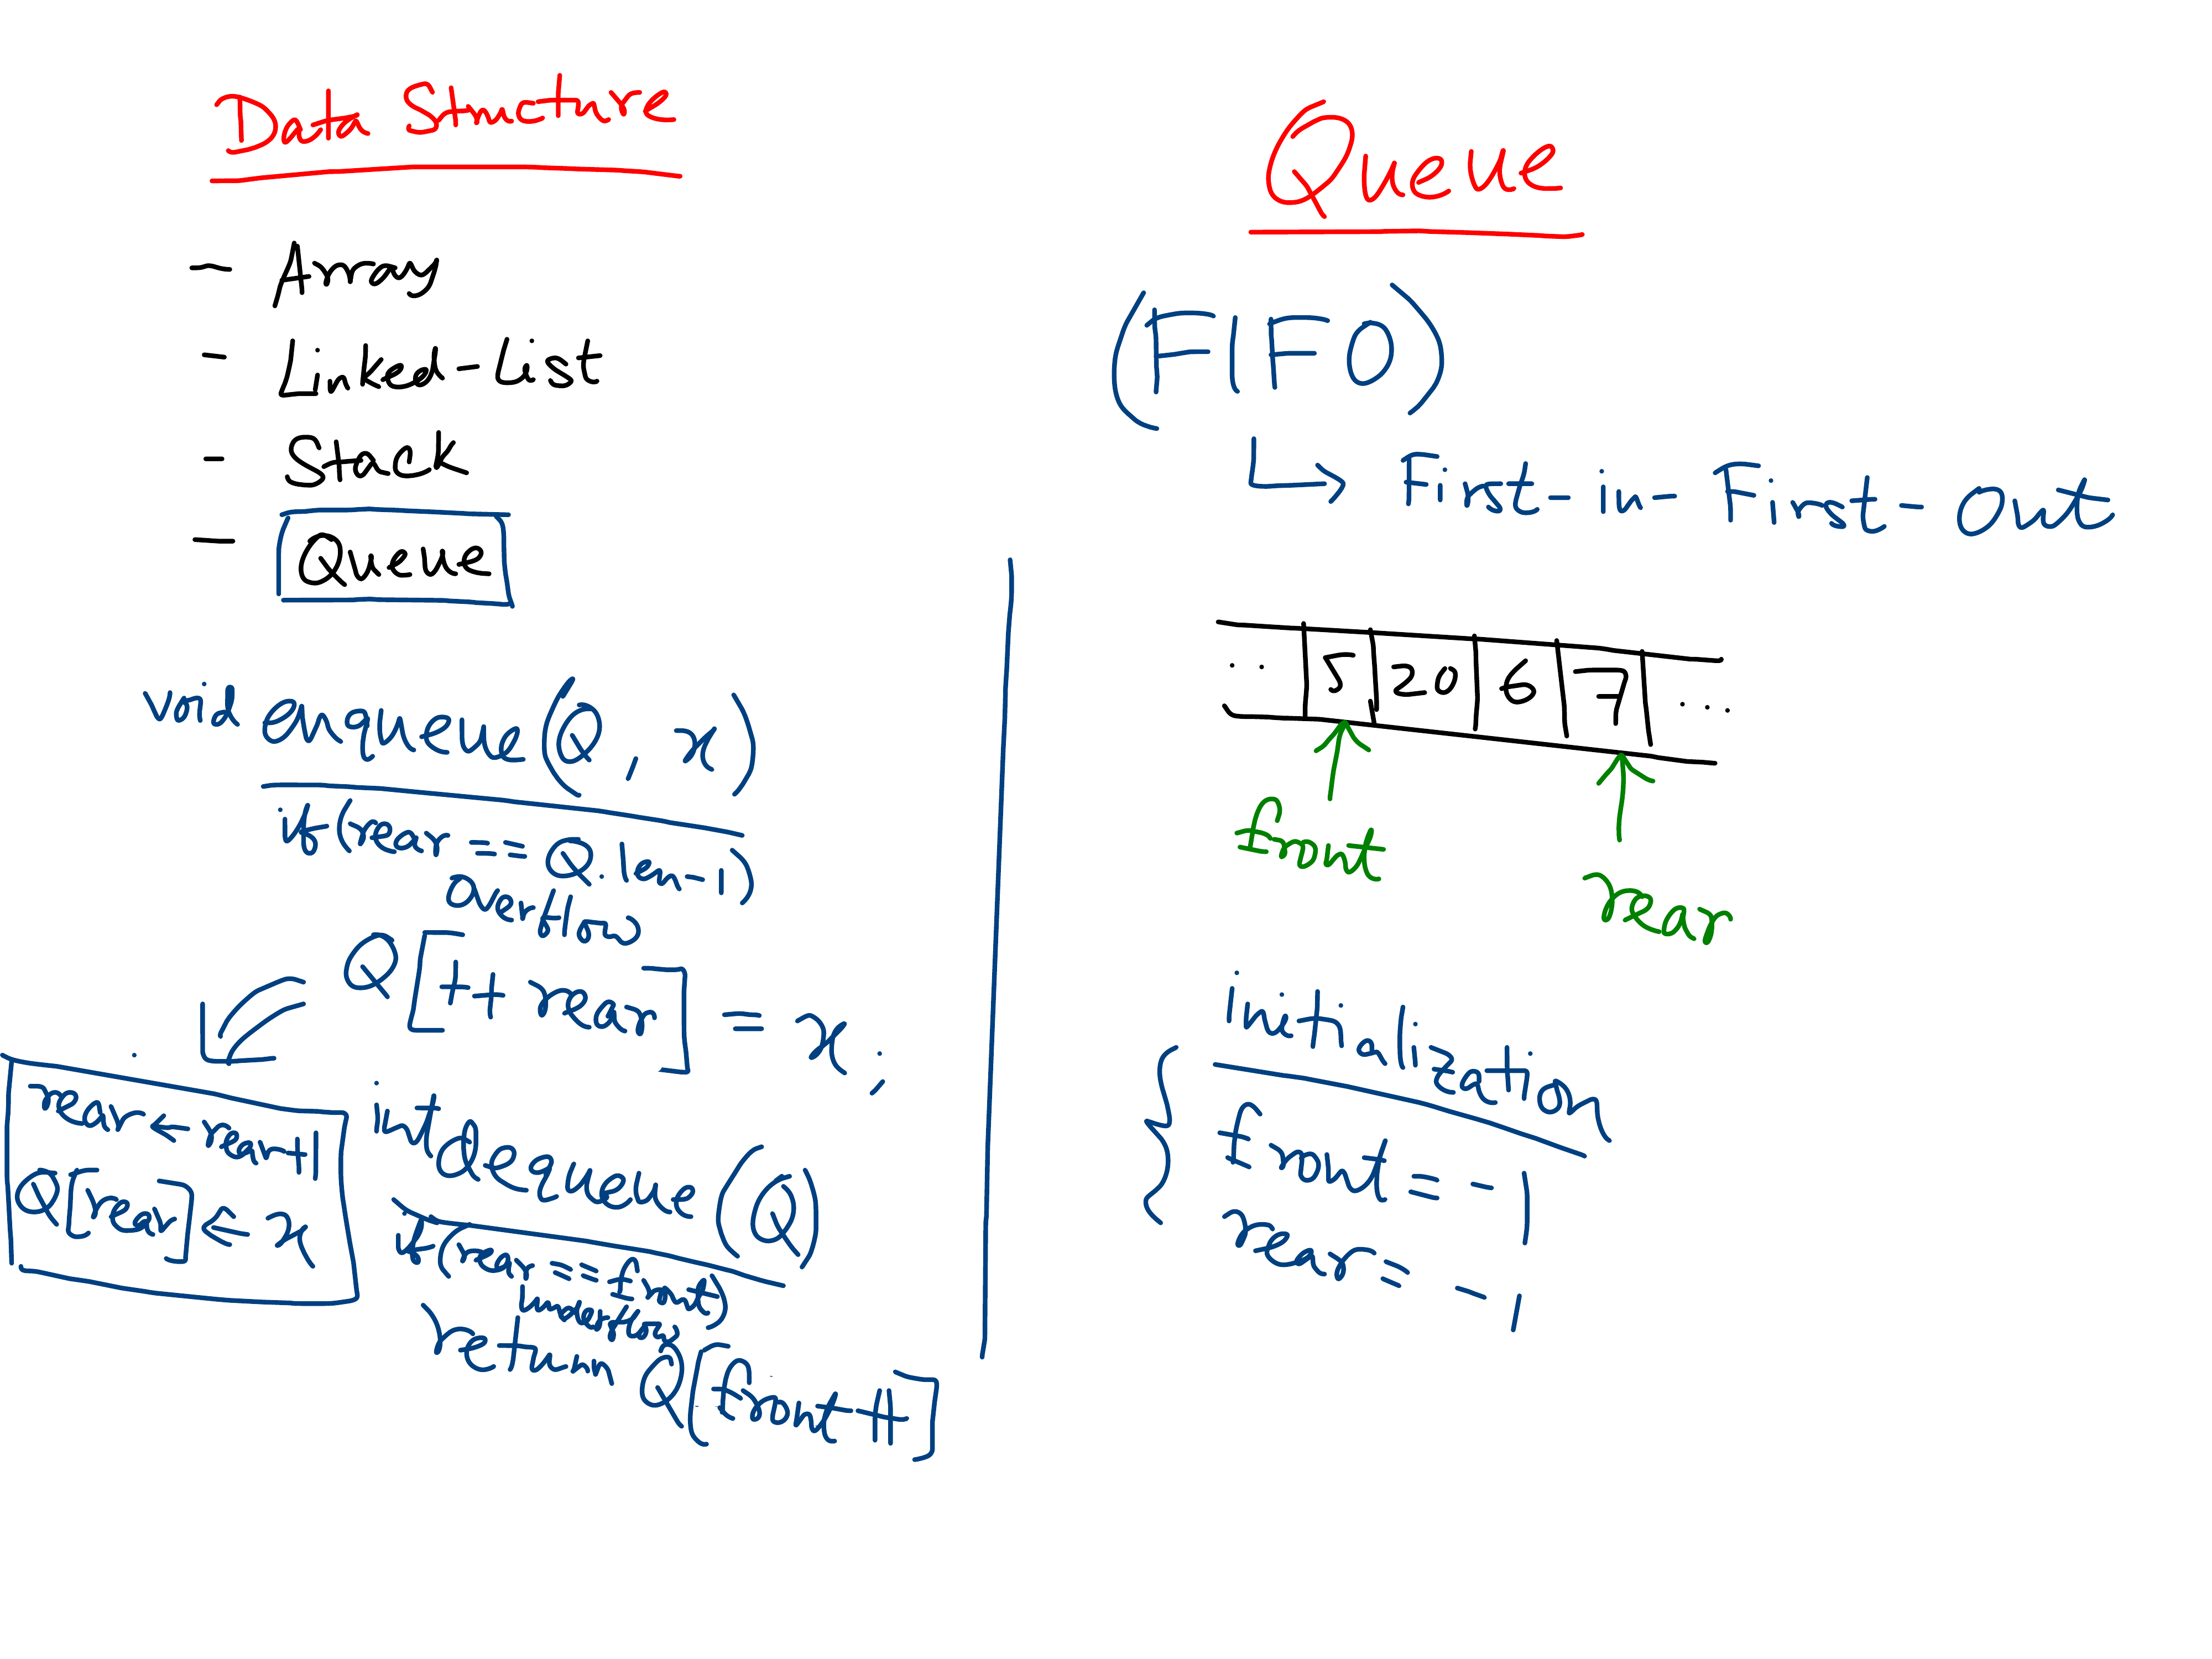 Data Structure
- Array
- Linked-List
- Stack
- Queue
void enqueue(Q, x)
if(rear == Q.len-1)
overflow
Q[++rear] = x;
rear ← rear+1
Q[rear] ← x
int dequeue(Q)
if(rear == front)
underflow
return Q[front++]
Queue
(FIFO)
↳ First-in-First-Out
.. 5 20 6 7 ...
front
rear
initialization
front = -1
rear = -1